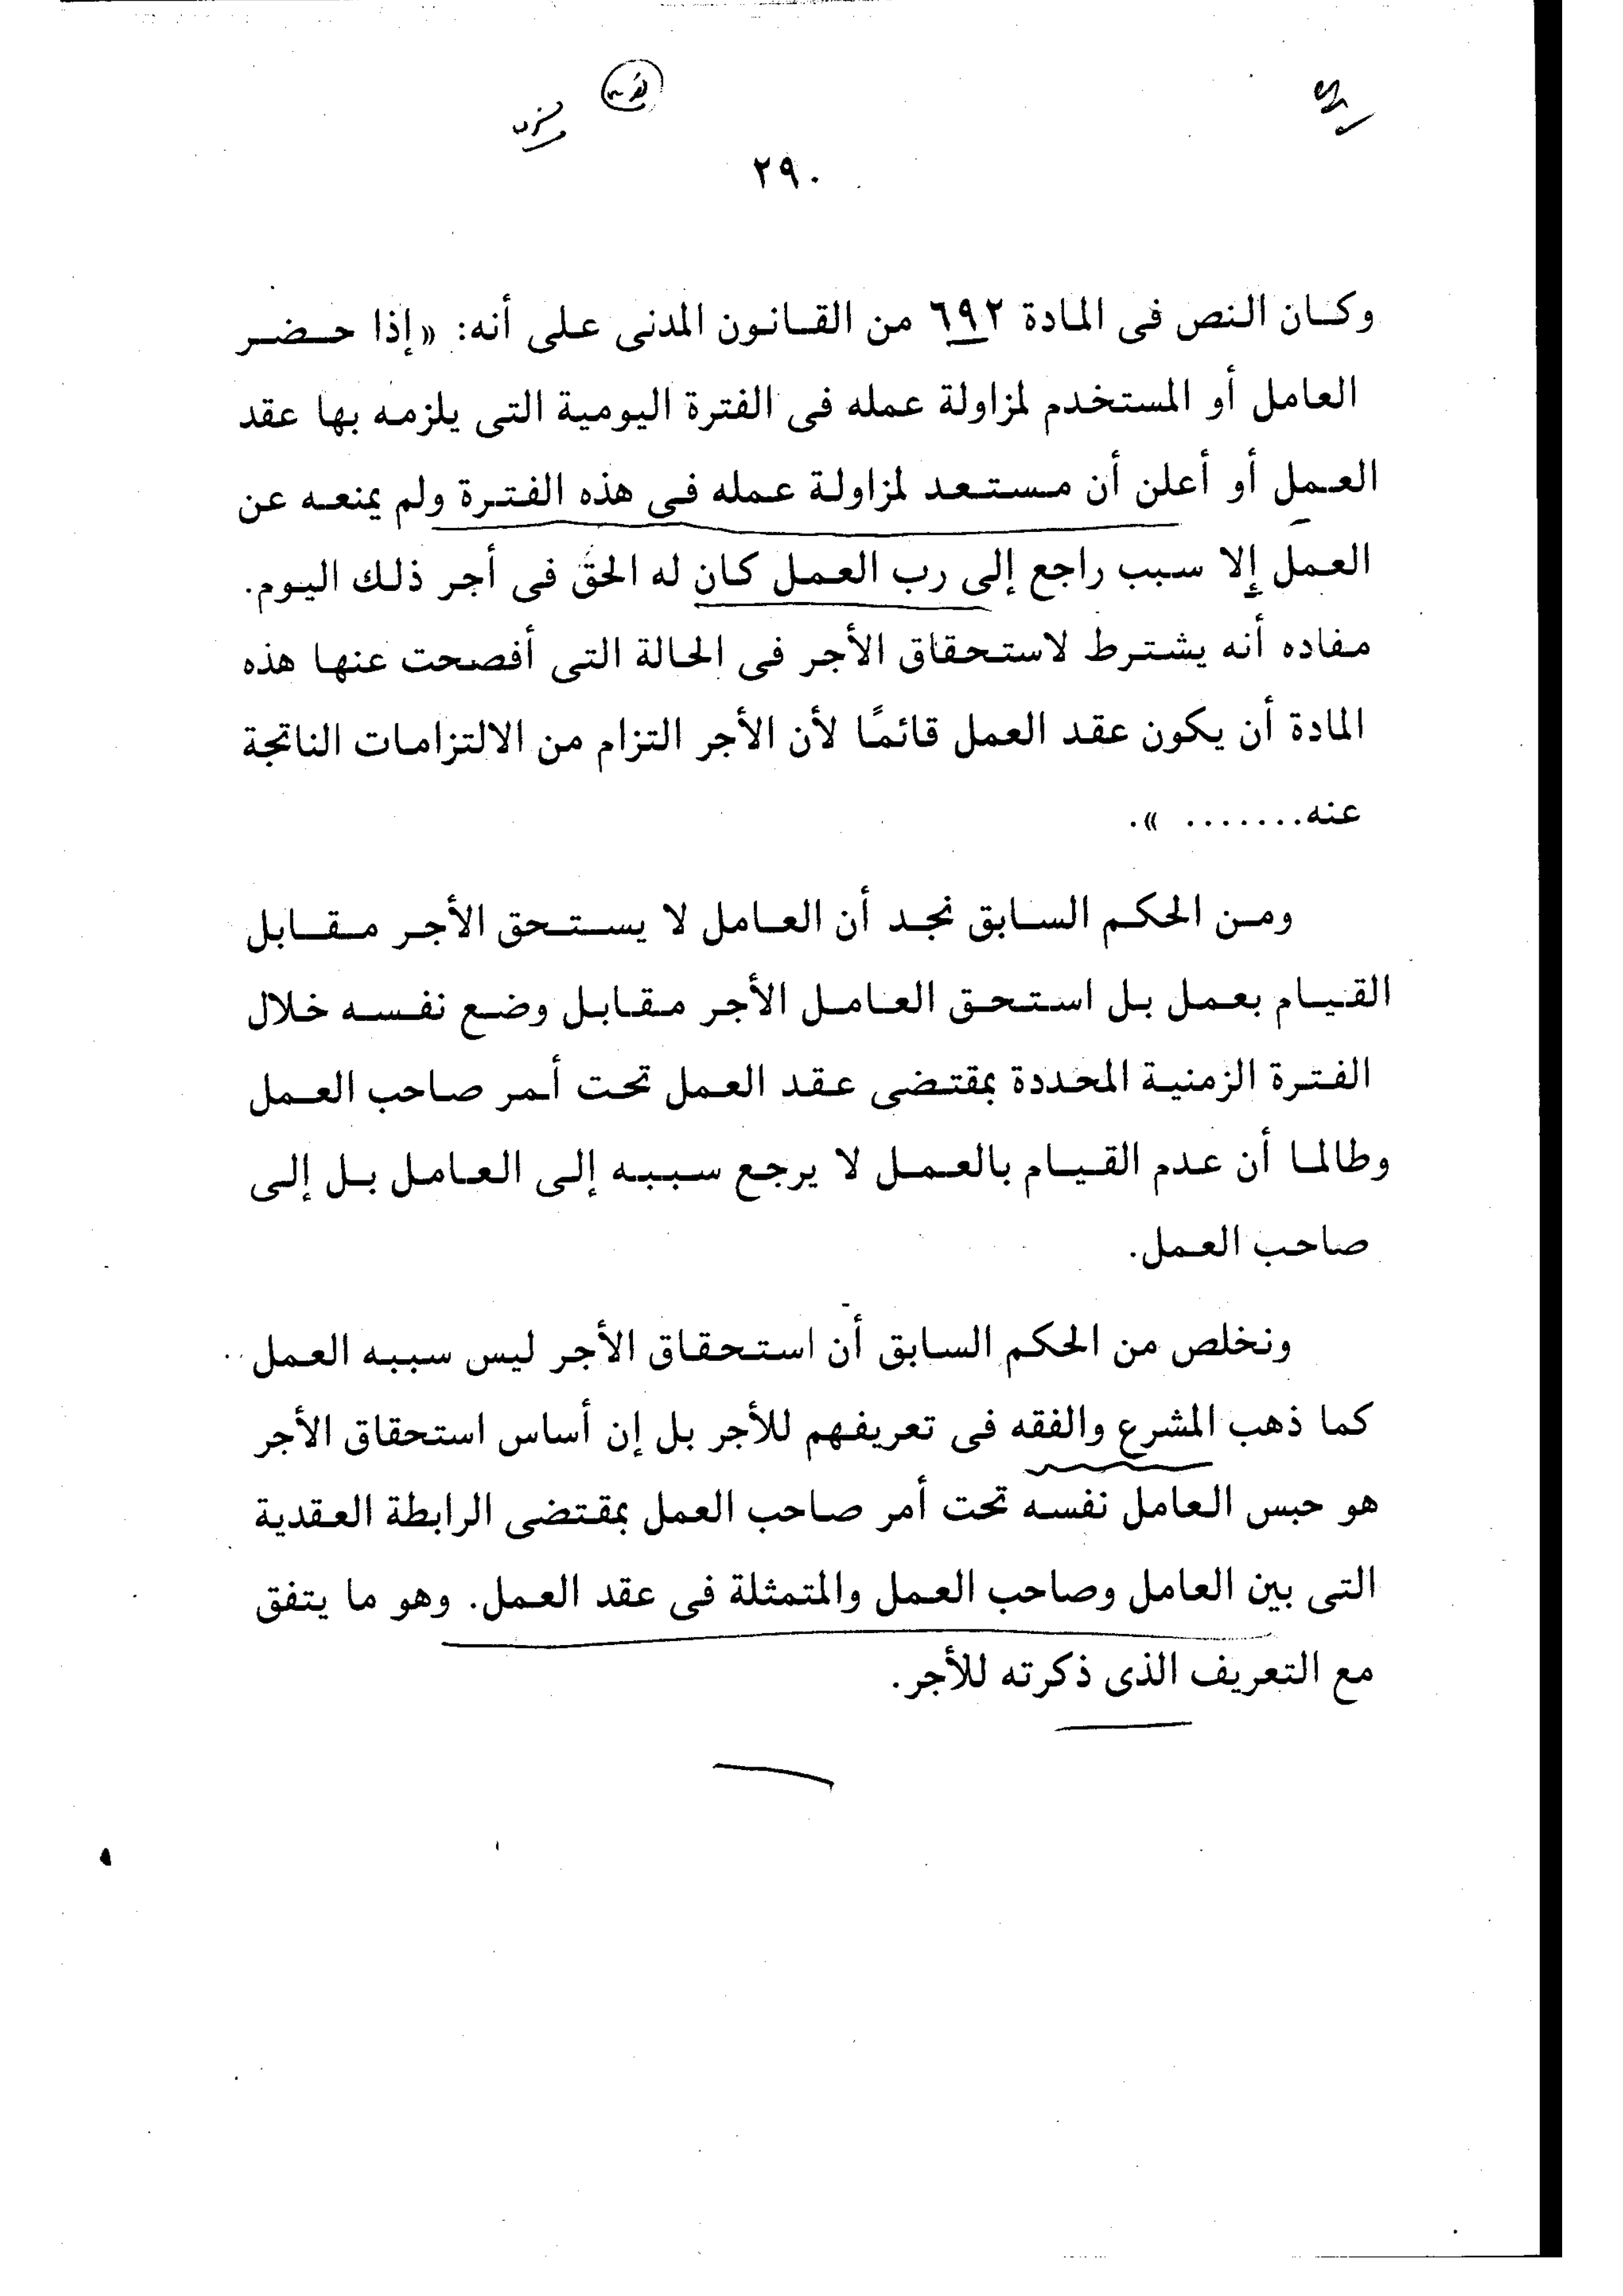 ٢٩٠
وكان النص فى المادة ٦٩٢ من القانون المدنى على أنه: «إذا حضر
العامل أو المستخدم لمزاولة عمله فى الفترة اليومية التى يلزمه بها عقد
العمل أو أعلن أن مستعد لمزاولة عمله فى هذه الفترة ولم يمنعه عن
العمل إلا سبب راجع إلى رب العمل كان له الحق فى أجر ذلك اليوم.
مفاده أنه يشترط لاستحقاق الأجر فى الحالة التى أفصحت عنها هذه
المادة أن يكون عقد العمل قائمًا لأن الأجر التزام من الالتزامات الناتجة
عنه....... ».
ومن الحكم السابق نجد أن العامل لا يستحق الأجر مقابل
القيام بعمل بل استحق العامل الأجر مقابل وضع نفسه خلال
الفترة الزمنية المحددة بمقتضى عقد العمل تحت أمر صاحب العمل
وطالما أن عدم القيام بالعمل لا يرجع سببه إلى العامل بل إلى
صاحب العمل.
ونخلص من الحكم السابق أن استحقاق الأجر ليس سببه العمل
كما ذهب المشرع والفقه فى تعريفهم للأجر بل إن أساس استحقاق الأجر
هو حبس العامل نفسه تحت أمر صاحب العمل بمقتضى الرابطة العقدية
التى بين العامل وصاحب العمل والمتمثلة فى عقد العمل. وهو ما يتفق
مع التعريف الذى ذكرته للأجر.